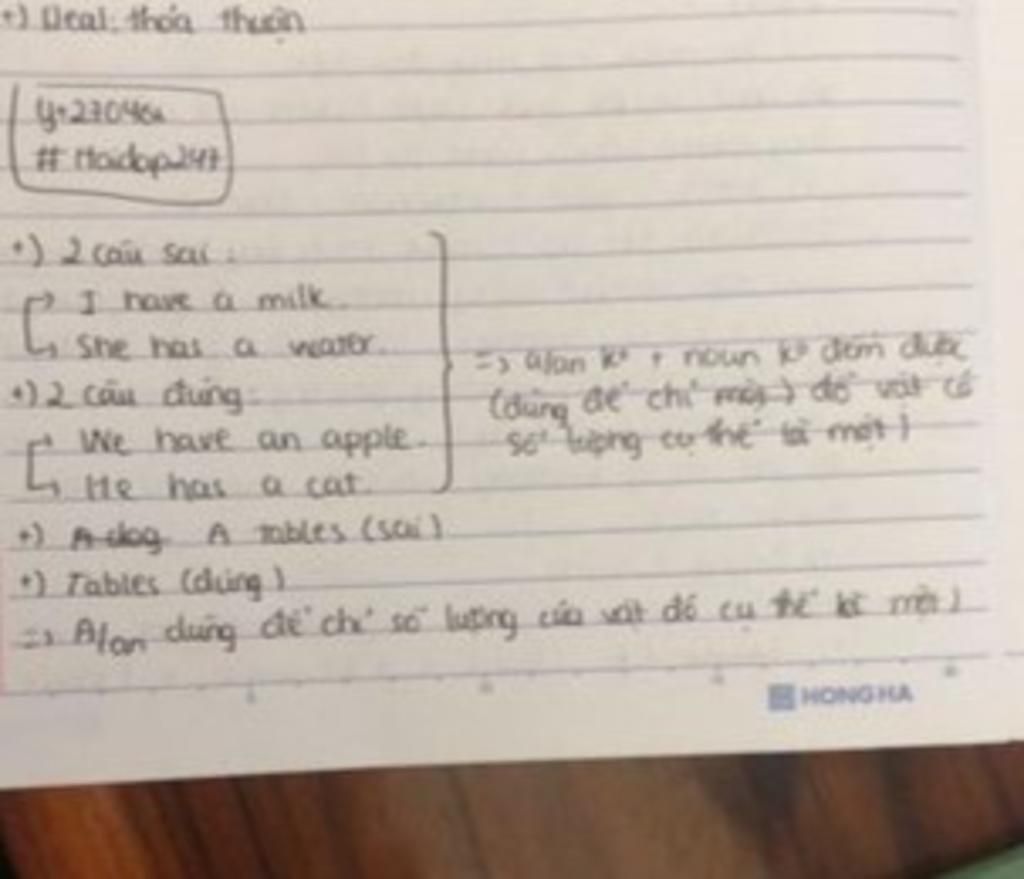 +) Deal: thỏa thuận
+) 2 câu sai:
→ I have a milk.
→ She has a water.
+) 2 câu đúng:
→ We have an apple.
→ He has a cat.
=> a/an ko + noun ko đếm được
(dùng để chỉ một) đồ vật có
số lượng cụ thể là một)
+) A dog A tables (sai)
+) Tables (đúng)
=> A/an dùng để chỉ số lượng của vật đó cụ thể là một)
HONG HA